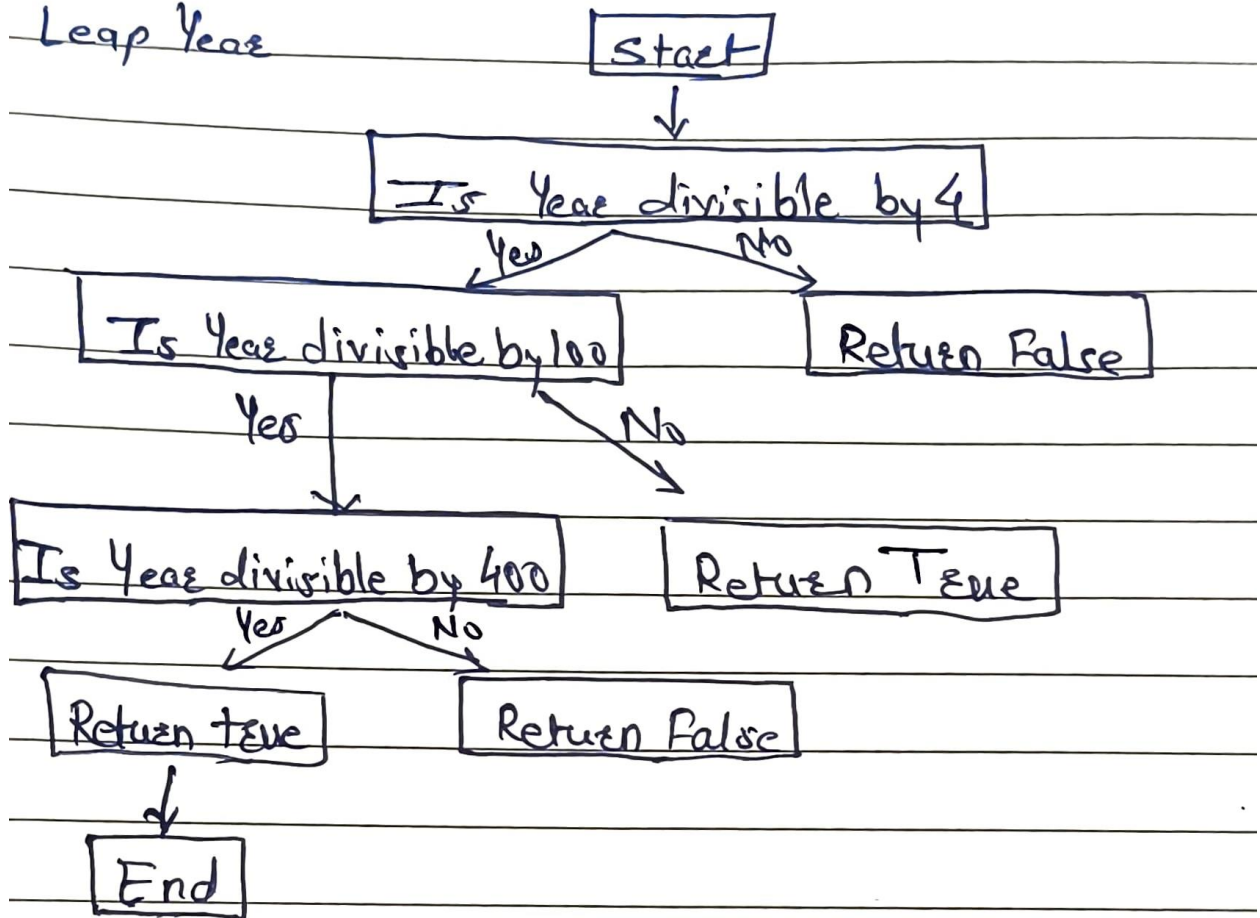 Leap Year
Start
Is Year divisible by 4
Yes
No
Is Year divisible by 100
Return False
Yes
No
Is Year divisible by 400
Return True
Yes
No
Return true
Return False
End